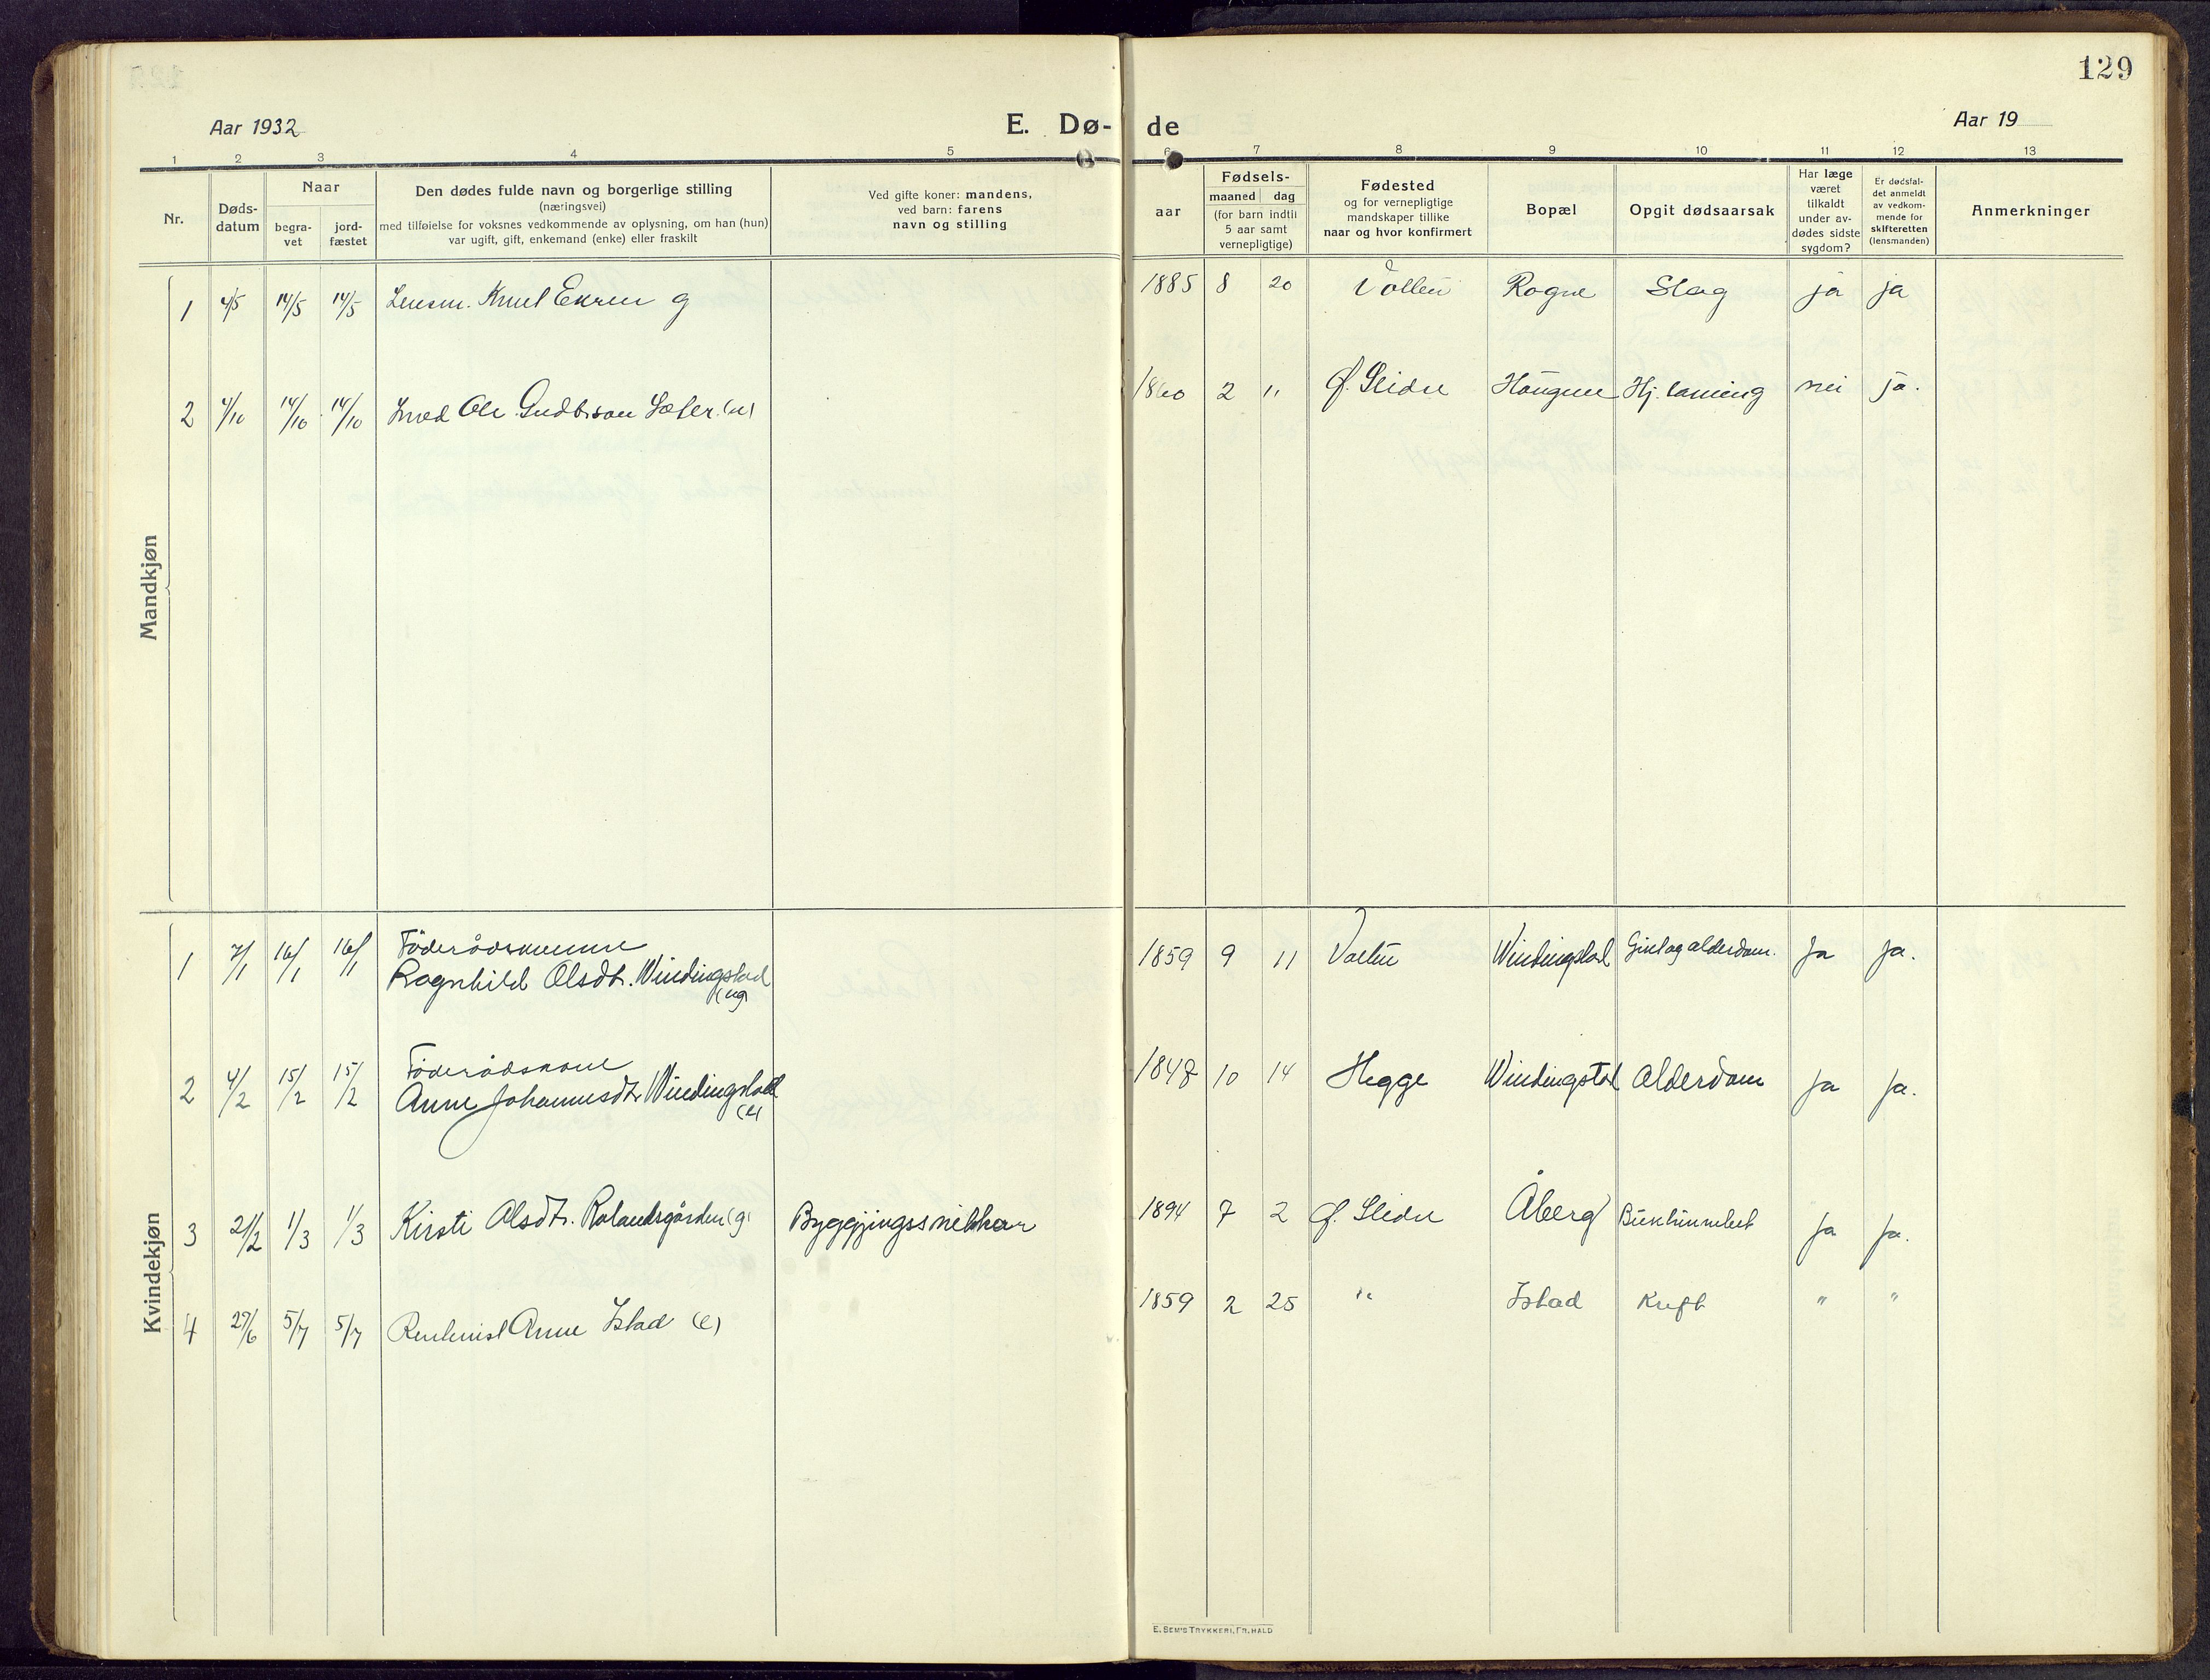 129
Aar 1932 E. Dø- de Aar 19
1 2 3 4 5 6 7 8 9 10 11 12 13
Nr.
Døds-
datum
Naar
begra-
vet
jord-
fæstet
Den dødes fulde navn og borgerlige stilling
(næringsvei)
med tilføielse for voksnes vedkommende av oplysning, om han (hun)
var ugift, gift, enkemand (enke) eller fraskilt
Ved gifte koner: mandens,
ved barn: farens
navn og stilling
aar
Fødsels-
maaned dag
(for barn indtil
5 aar samt
vernepligtige)
Fødested
og for vernepligtige
mandskaper tillike
naar og hvor konfirmert
Bopæl
Opgit dødsaarsak
Har læge
været
tilkaldt
under av-
dødes sidste
sygdom?
Er dødsfal-
det anmeldt
av vedkom-
mende for
skifteretten
(lensmanden)
Anmerkninger
Mandkjøn
1 4/5 14/5 14/5 Lensm. Knut Ekren g 1885 8 20 Volten Rogne Slag ja ja
2 4/10 14/10 14/10 Ole Gudbr.son Sæter (u) 1860 2 11 Ø. Slidre Haugen Hj. lamming nei ja.
Kvindekjøn
1 7/1 16/1 16/1 Föderådskvinne
Ragnhild Olsdt. Windingstad (ug) 1859 9 11 Volten Windingstad Gikt og alderdom. Ja Ja.
2 4/2 15/2 15/2 Föderådskone
Anne Johannesdtr Windingstad (e) 1848 10 14 Hegge Windingstad Alderdom Ja Ja.
3 21/2 1/3 1/3 Kirsti Olsdt. Rolandsgården (g) Byggjingssnikkar 1894 7 2 Ø. Slidre Åberg Ja Ja.
4 27/6 5/7 5/7 Rentenist Anne Istad (e) 1859 2 25 " Istad Kreft " "
E. SEM'S TRYKKERI, FR.HALD